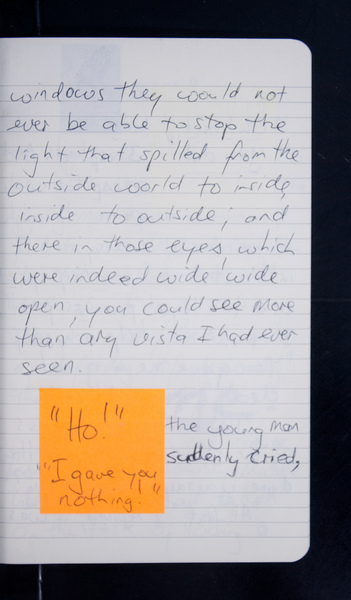 windows they would not
ever be able to stop the
light that spilled from the
outside world to inside,
inside to outside; and
there in those eyes, which
were indeed wide wide
open, you could see more
than any vista I had ever
seen.
"Ho!"
the young man
suddenly cried,
"I gave you
nothing."